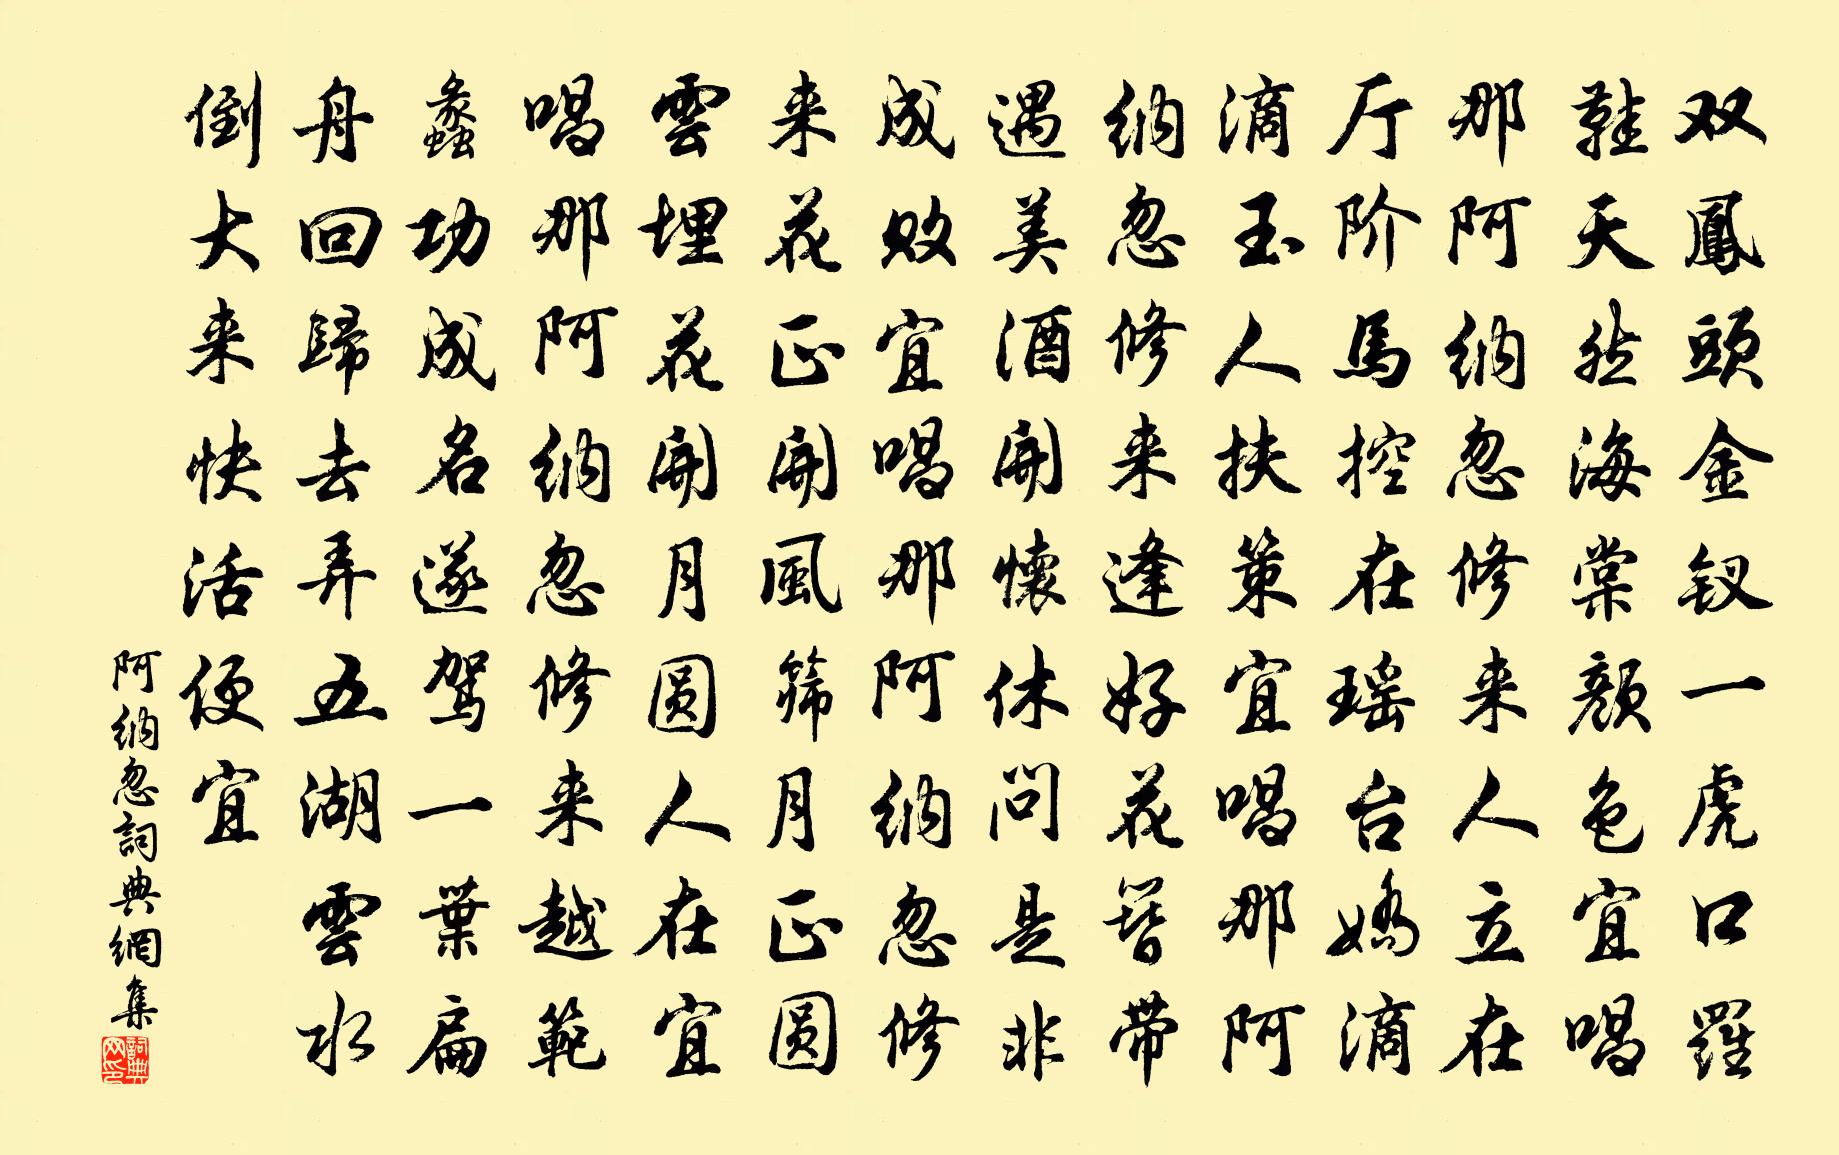 双鳳頭金钗一虎口羅
鞋天然海棠顔色宜唱
那阿纳忽修来人立在
厅阶馬控在瑶台嬌滴
滴玉人扶策宜唱那阿
纳忽修来逢好花簪带
遇美酒開懐休問是非
成败宜唱那阿纳忽修
来花正開風篩月正圆
雲埋花開月圆人在宜
唱那阿纳忽修来越範
蠡功成名遂駕一葉扁
舟回歸去弄五湖雲水
倒大来快活便宜
阿纳忽詞典網集
詞典网印